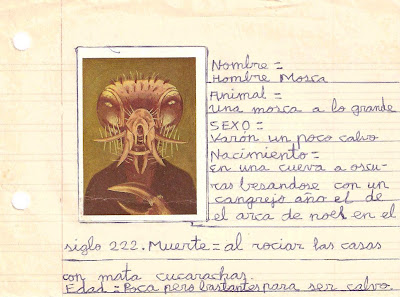 Nombre =
Hombre Mosca
Animal =
Una mosca a lo grande
SEXO =
Varón un poco calvo
Nacimiento =
En una cueva a oscu-
ras besandose con un
cangrejo año el de
el arca de noel en el
siglo 222. Muerte = al rociar las casas
con mata cucarachas.
Edad = Poca pero bastantes para ser calvo.